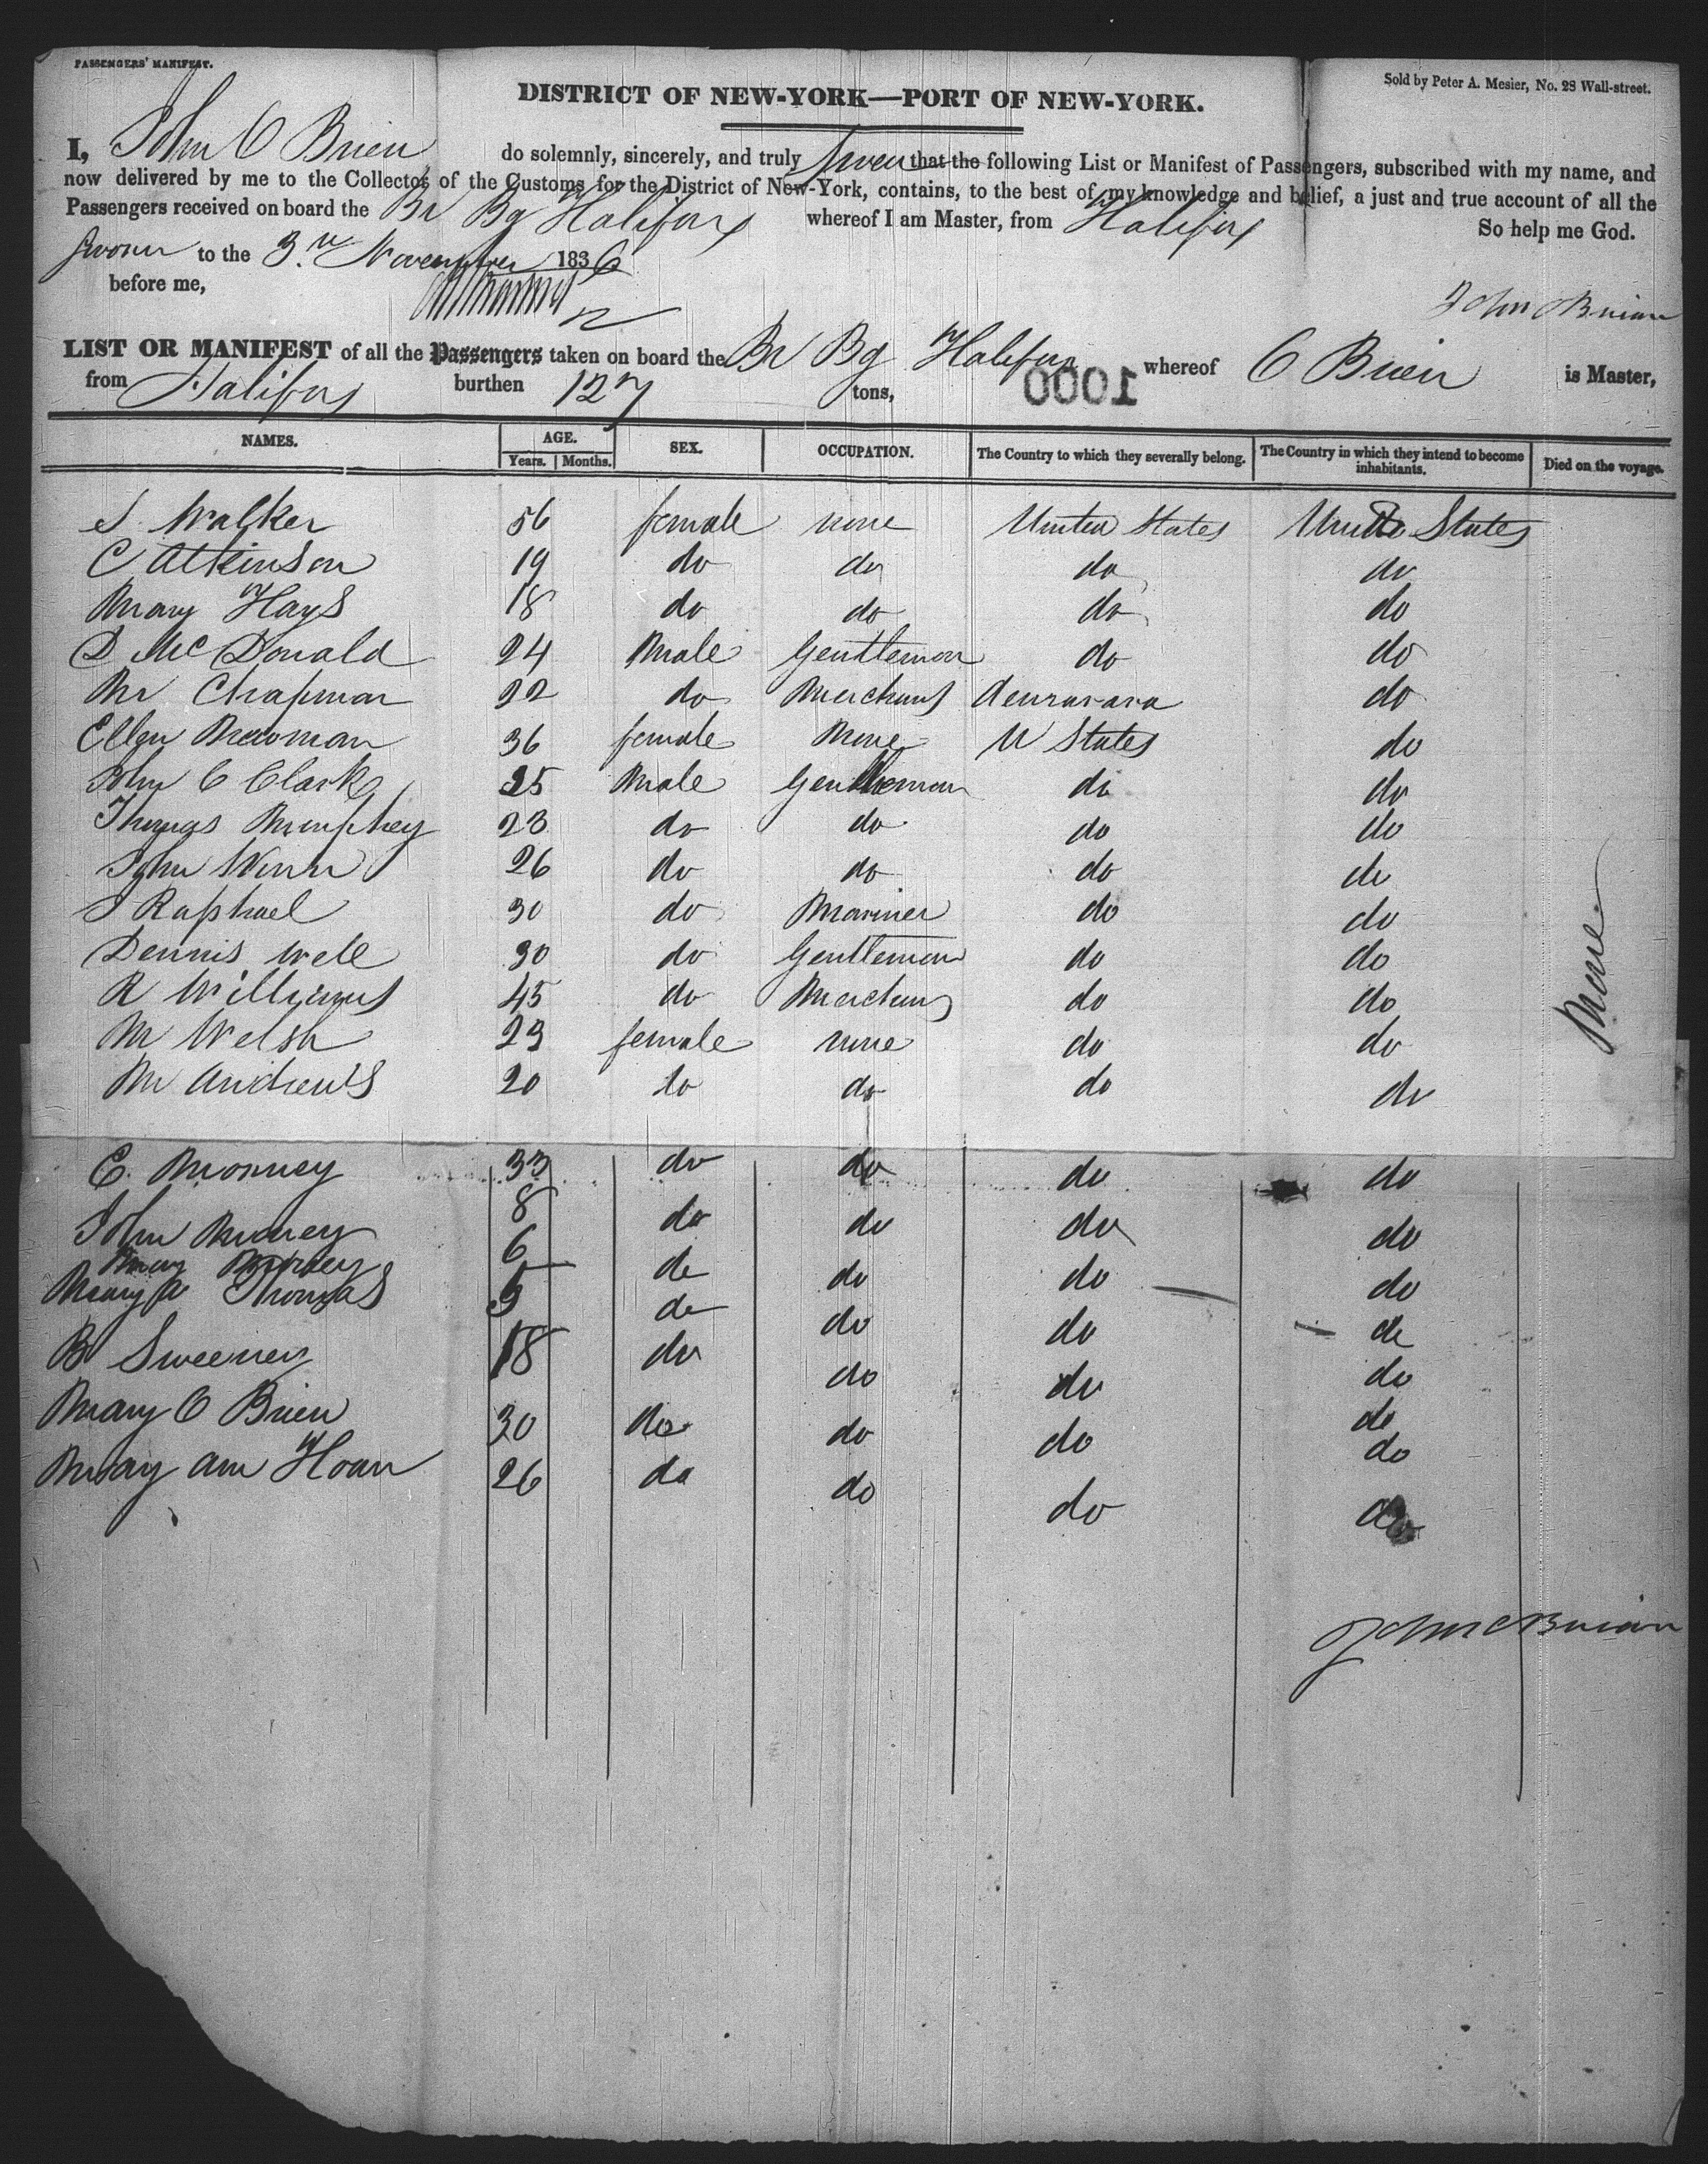 PASSENGERS' MANIFEST.
Sold by Peter A. Mesier, No. 28 Wall-street.
DISTRICT OF NEW-YORK—PORT OF NEW-YORK.
I, John O Brien do solemnly, sincerely, and truly Swear that the following List or Manifest of Passengers, subscribed with my name, and
now delivered by me to the Collector of the Customs for the District of New-York, contains, to the best of my knowledge and belief, a just and true account of all the
Passengers received on board the Br Bg Halifax whereof I am Master, from Halifax So help me God.
Sworn to the 3rd November 1836
before me,
John OBrian
LIST OR MANIFEST of all the Passengers taken on board the Br Bg Halifax whereof O Brien is Master,
from Halifax burthen 127 tons,
0001
NAMES. AGE. SEX. OCCUPATION. The Country to which they severally belong. The Country in which they intend to become inhabitants. Died on the voyage.
Years. Months.
S Walker 56 female none United States United States
C Atkinson 19 do do do do
Mary Hays 18 do do do do
D McDonald 24 Male Gentleman do do
Mr Chapman 22 do Merchant do
Ellen 36 female None U States do
John C Clark 25 Male Gentleman do do
Thomas Murphey 23 do do do do
John Winn 26 do do do do
J Raphael 30 do Mariner do do
Dennis Well 30 do Gentleman do do
R Williams 45 do Merchant do do
M Welsh 23 female none do do
M Andrews 20 do do do do
None
E. Morney 33 do do do do
John 8 do do do do
Mary 6 do do do do
Mary A Thomas 5 do do do do
B Sweeney 18 do do do do
Mary O Brien 30 do do do do
do
Mary Ann Hoan 26 do do do do
John OBrian